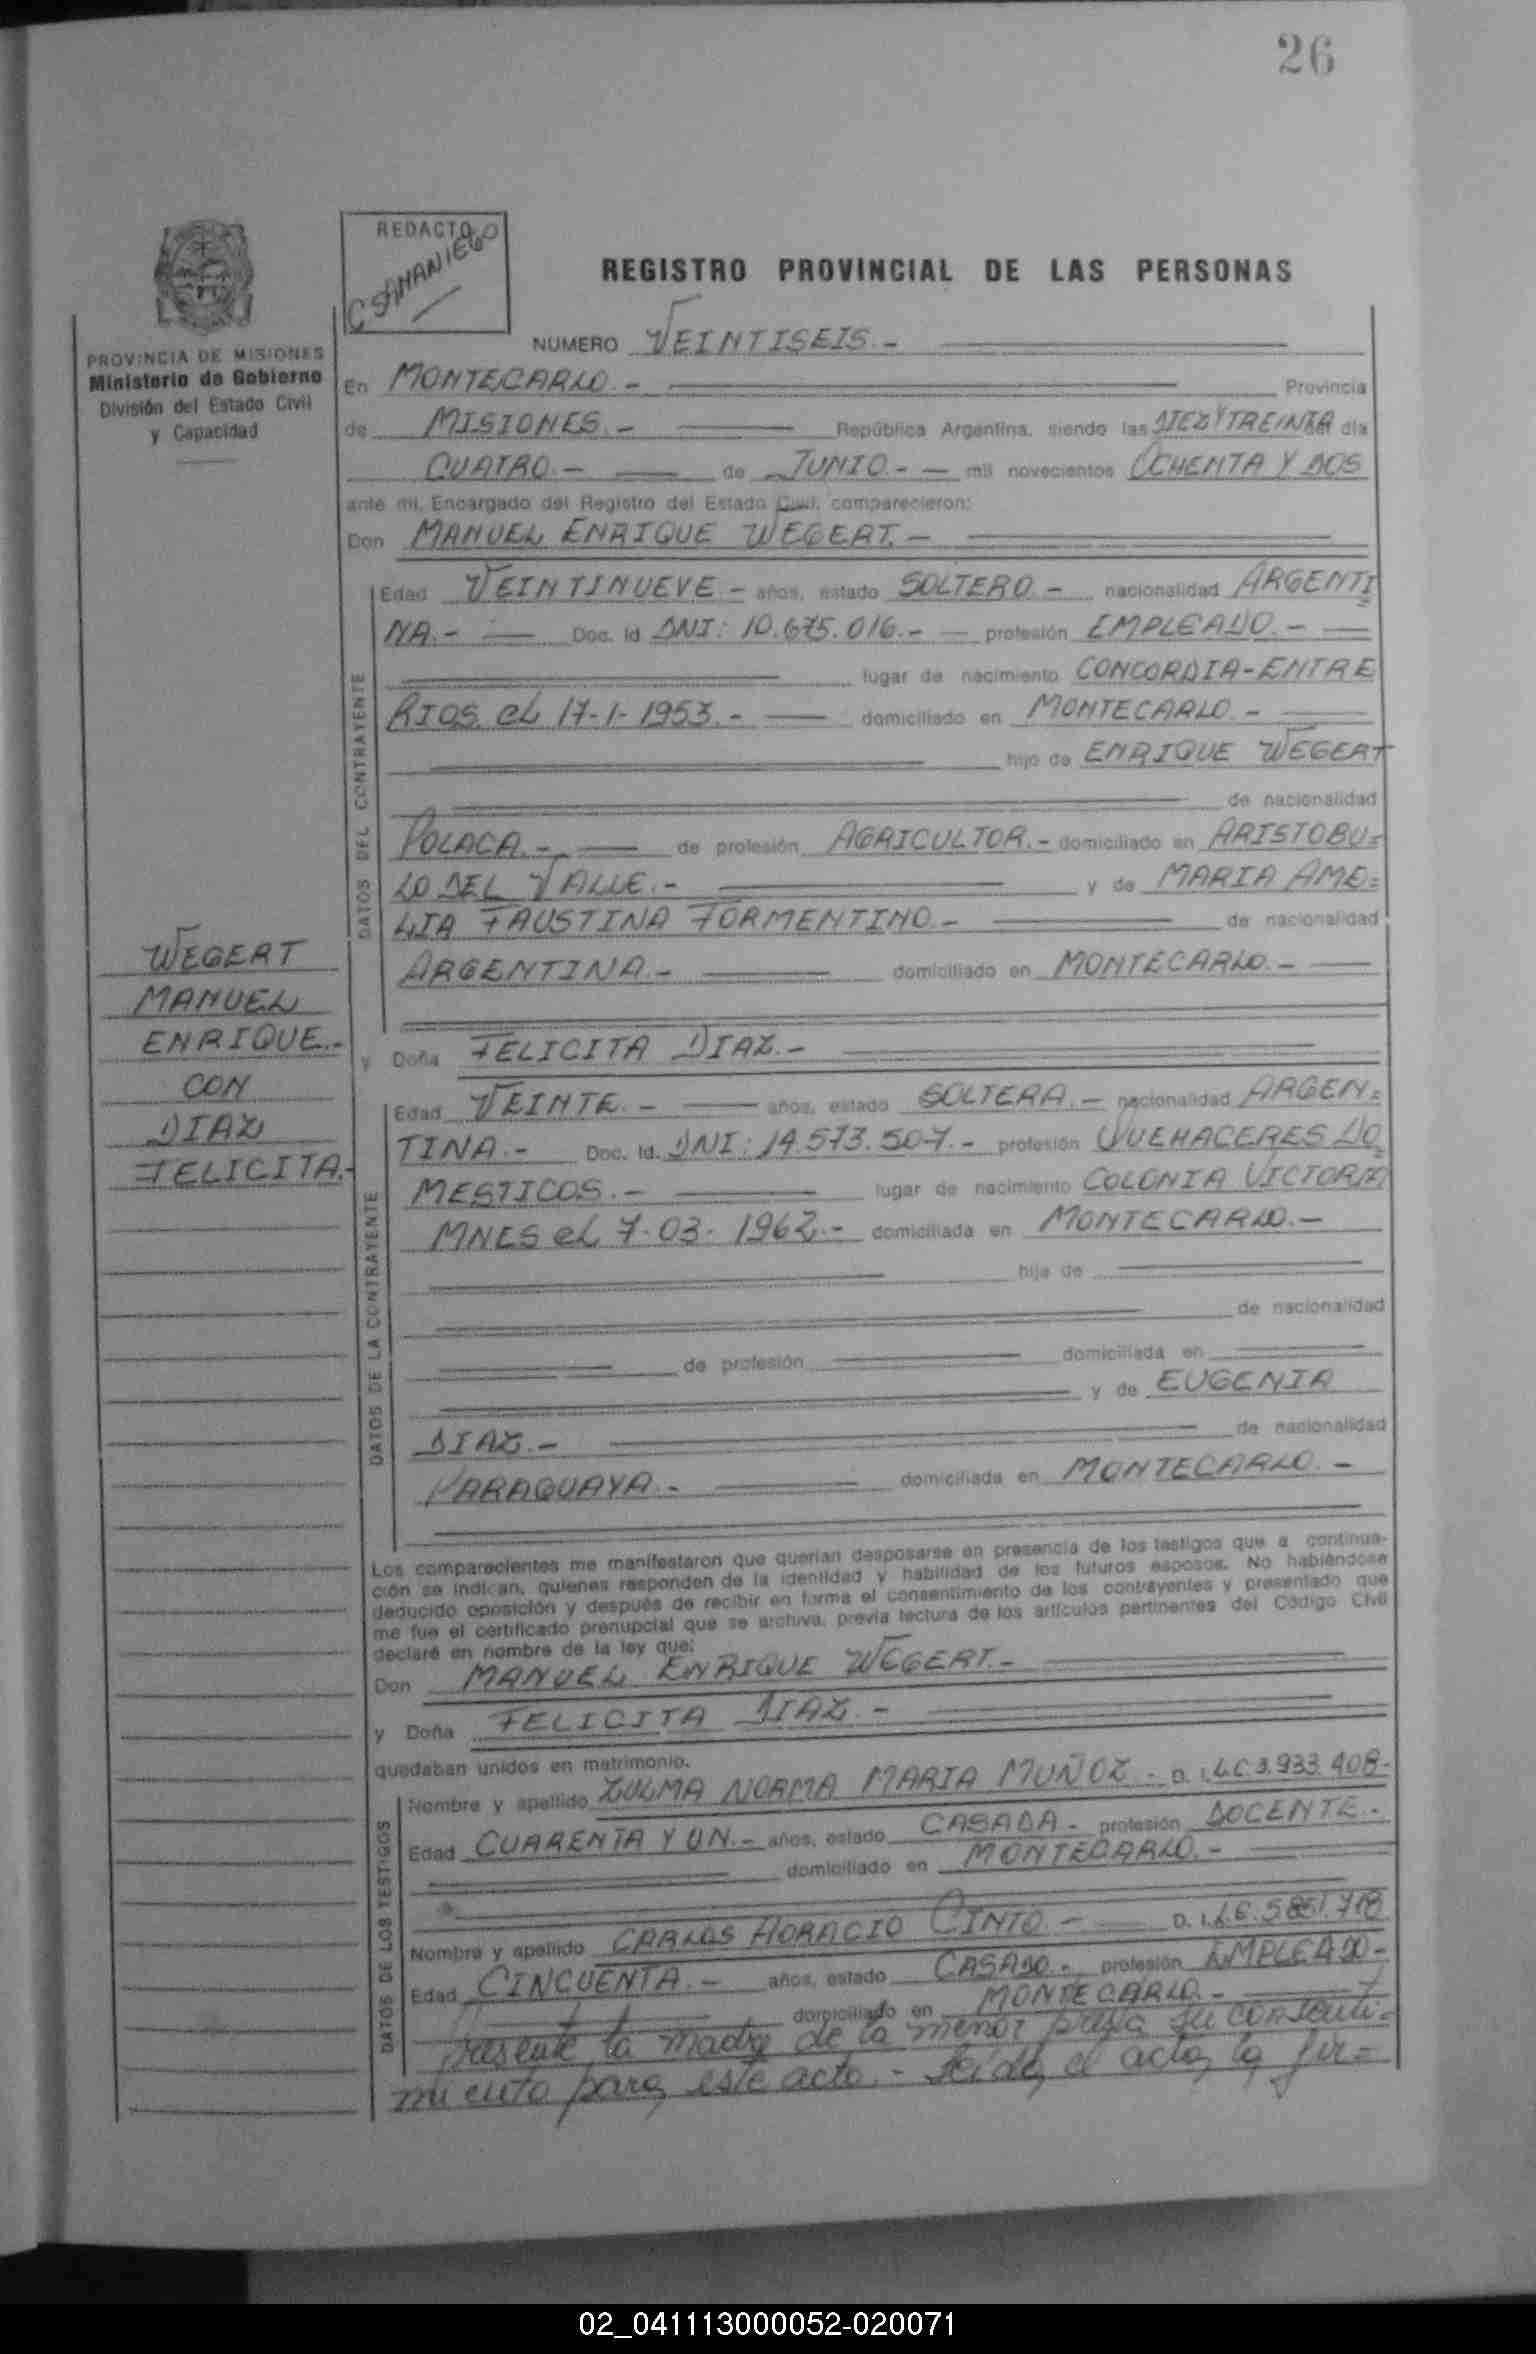 26
REDACTO
C SAMANIEGO
REGISTRO PROVINCIAL DE LAS PERSONAS
PROVINCIA DE MISIONES
Ministerio de Gobierno
División del Estado Civil
y Capacidad
NUMERO VEINTISEIS.-
En MONTECARLO.- Provincia
de MISIONES.- República Argentina, siendo las DIEZ Y TREINTA del día
CUATRO.- de JUNIO.- mil novecientos OCHENTA Y DOS
ante mi, Encargado del Registro del Estado Civil, comparecieron:
Don MANUEL ENRIQUE WEGERT.-
DATOS DEL CONTRAYENTE
Edad VEINTINUEVE - años, estado SOLTERO.- nacionalidad ARGENTI
NA.- Doc. Id DNI: 10.675.016.- profesión EMPLEADO.-
lugar de nacimiento CONCORDIA-ENTRE
RIOS el 17-1-1953.- domiciliado en MONTECARLO.-
hijo de ENRIQUE WEGERT
de nacionalidad
POLACA.- de profesión AGRICULTOR.- domiciliado en ARISTOBU=
LO DEL VALLE.- y de MARIA AME=
LIA FAUSTINA FORMENTINO.- de nacionalidad
ARGENTINA.- domiciliado en MONTECARLO.-
WEGERT
MANUEL
ENRIQUE.-
CON
DIAZ
FELICITA.-
y Doña FELICITA DIAZ.-
DATOS DE LA CONTRAYENTE
Edad VEINTE.- años, estado SOLTERA.- nacionalidad ARGEN=
TINA.- Doc. Id. DNI: 14.573.507.- profesión QUEHACERES DO
MESTICOS.- lugar de nacimiento COLONIA VICTORIA
MNES el 7-03-1962.- domiciliada en MONTECARLO.-
hija de
de nacionalidad
de profesión domiciliada en
y de EUGENIA
DIAZ.- de nacionalidad
PARAGUAYA.- domiciliada en MONTECARLO.-
Los comparecientes me manifestaron que querían desposarse en presencia de los testigos que a continua-
ción se indican, quienes responden de la identidad y habilidad de los futuros esposos. No habiéndose
deducido oposición y después de recibir en forma el consentimiento de los contrayentes y presentado que
me fue el certificado prenupcial que se archiva, previa lectura de los artículos pertinentes del Código Civil
declaré en nombre de la ley que:
Don MANUEL ENRIQUE WEGERT.-
y Doña FELICITA DIAZ.-
quedaban unidos en matrimonio.
DATOS DE LOS TESTIGOS
Nombre y apellido ZULMA NORMA MARIA MUÑOZ.- D. I. L.C 3.933.408-
Edad CUARENTA Y UN.- años, estado CASADA.- profesión DOCENTE.-
domiciliado en MONTECARLO.-
Nombre y apellido CARLOS HORACIO CINTO.- D. I. L.E. 5.851.718
Edad CINCUENTA.- años, estado CASADO.- profesión EMPLEADO-
domiciliado en MONTECARLO.-
Presente la madre de la menor presta su consenti=
miento para este acto.- Leida el acta, la fir=
02_041113000052-020071